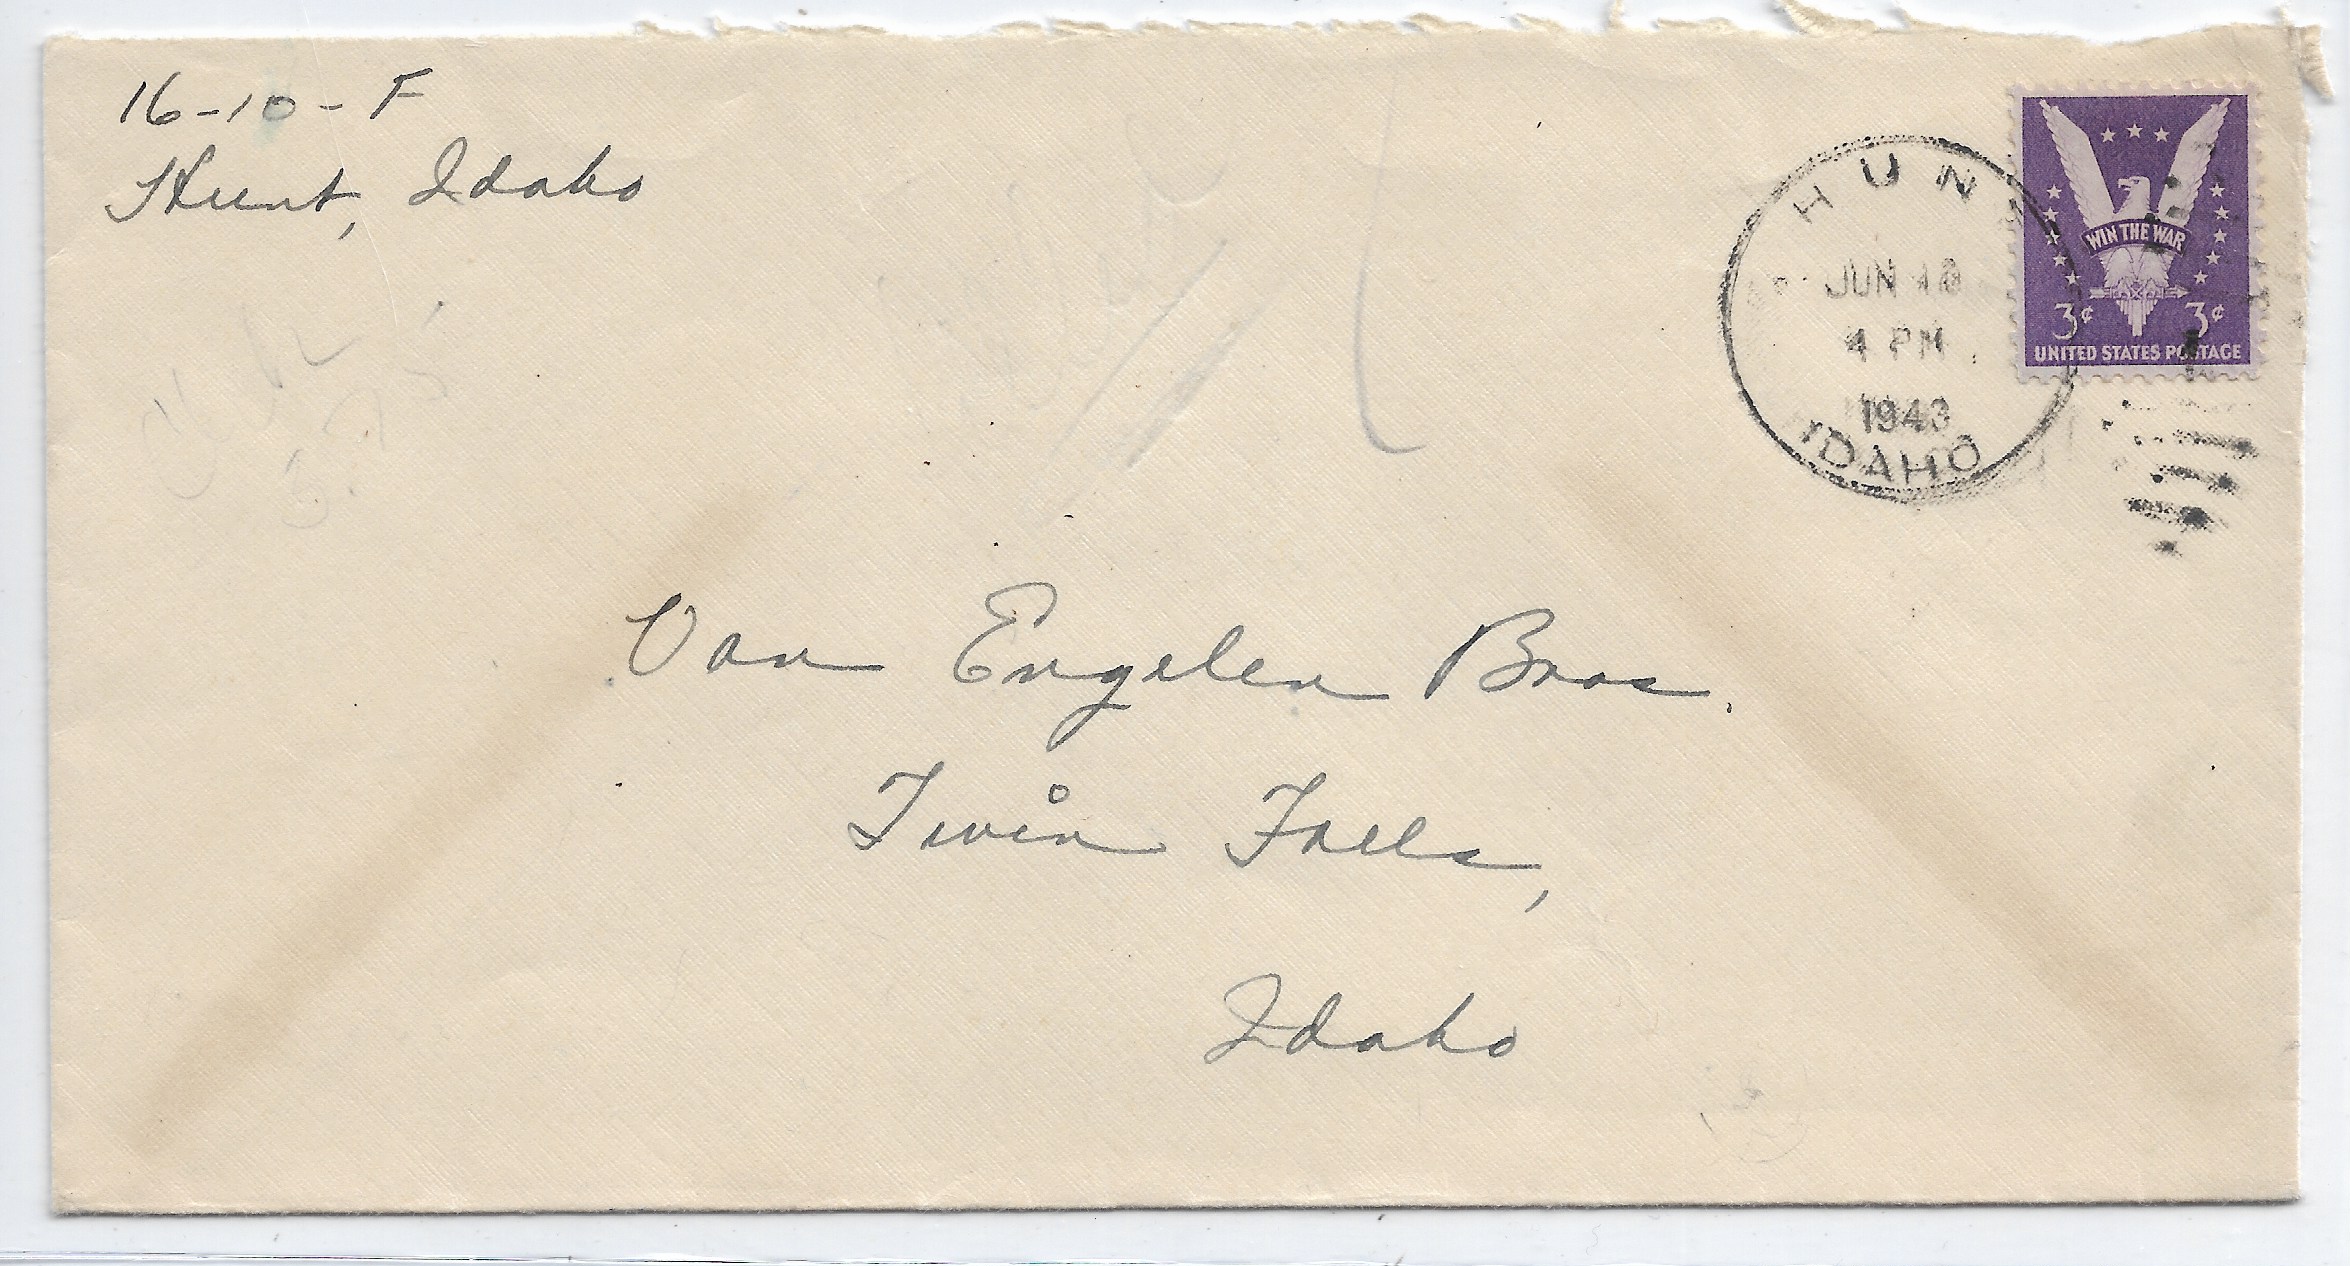 16-10-F
Hunt, Idaho
HUNT
JUN 18
4 PM
1943
IDAHO
WIN THE WAR
3¢ 3¢
UNITED STATES POSTAGE
Van Engelen Bros.
Twin Falls,
Idaho